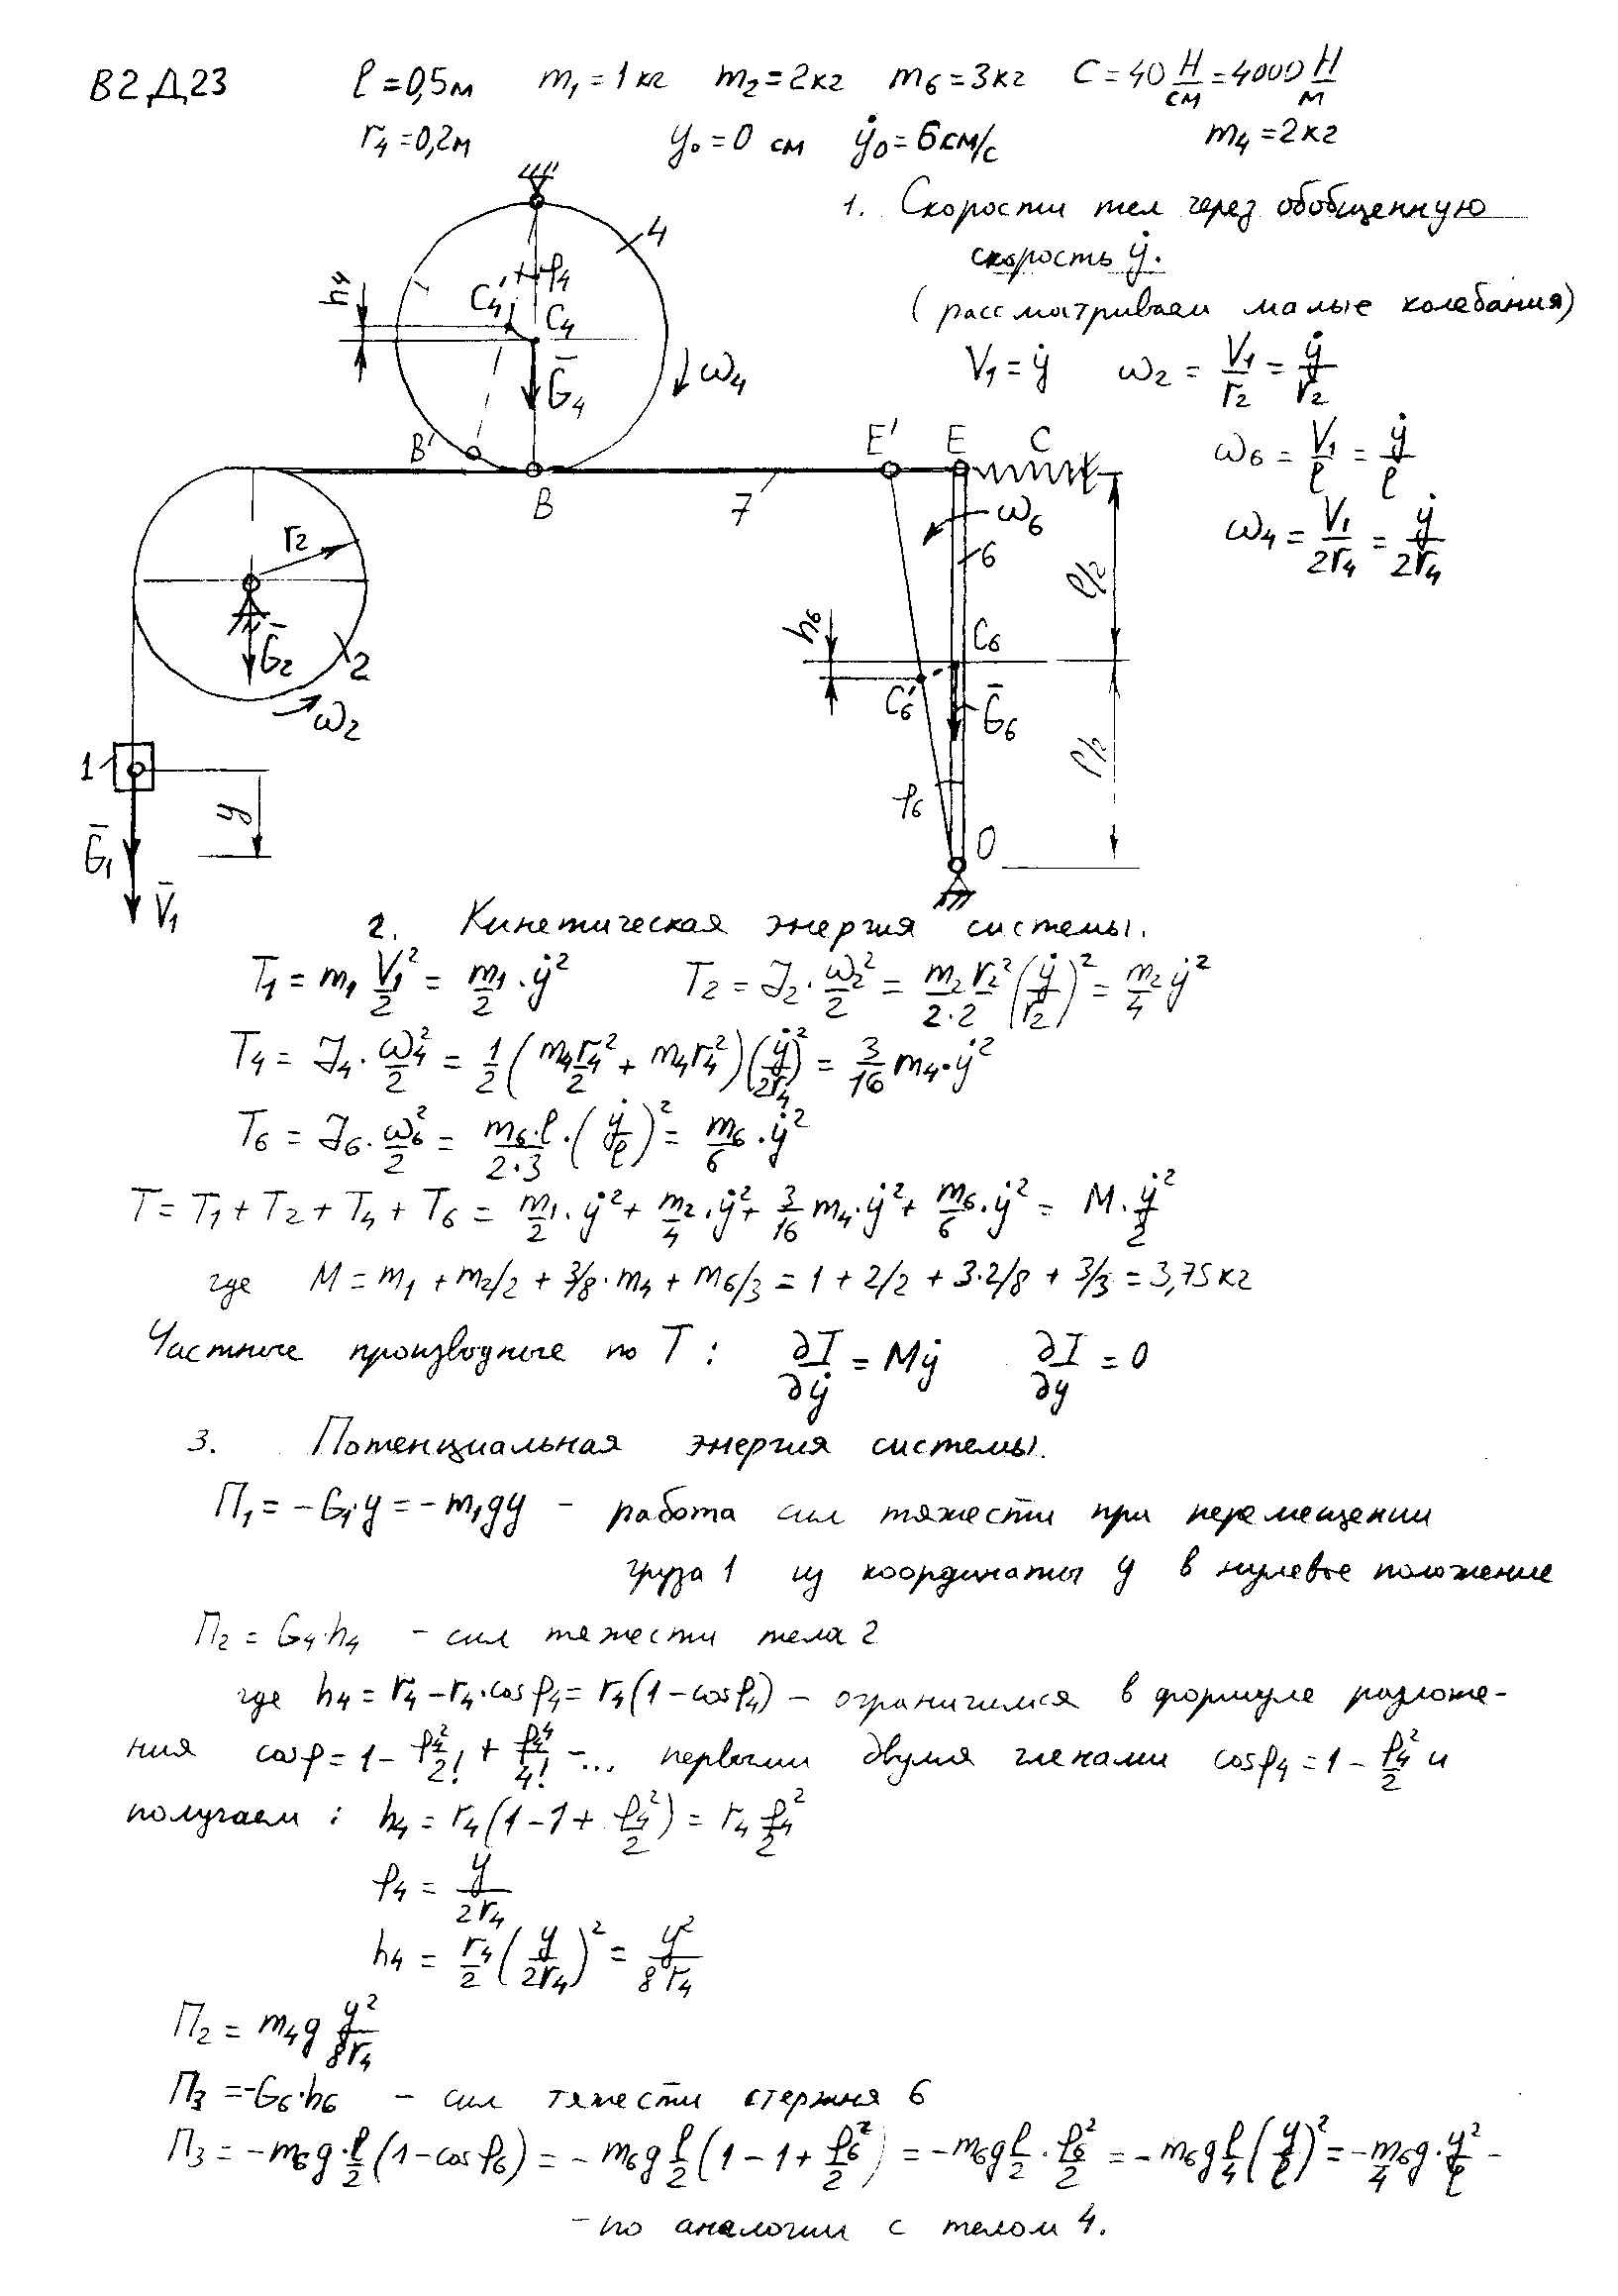 В2 Д23 l = 0,5м m₁ = 1 кг m₂ = 2кг m₆ = 3кг C = 40 Н/см = 4000 Н/м
r₄ = 0,2м y₀ = 0 см ẏ₀ = 6см/с m₄ = 2кг
1. Скорости тел через обобщенную
скорость ẏ.
(рассматриваем малые колебания)
V₁ = ẏ ω₂ = V₁/r₂ = ẏ/r₂
ω₆ = V₁/l = ẏ/l
ω₄ = V₁/2r₄ = ẏ/2r₄
4
φ₄
h₄
C₄'
C₄
Ḡ₄
ω₄
B'
B
7
E'
E
C
ω₆
6
l/2
r₂
Ḡ₂
2
ω₂
h₆
C₆
C₆'
Ḡ₆
l/2
φ₆
O
1
y
Ḡ₁
V̄₁
2. Кинетическая энергия системы.
T₁ = m₁ V₁²/2 = m₁/2 · ẏ² T₂ = J₂ · ω₂²/2 = m₂r₂²/2·2 (ẏ/r₂)² = m₂/4 ẏ²
T₄ = J₄ · ω₄²/2 = 1/2 (m₄r₄²/2 + m₄r₄²)(ẏ/2r₄)² = 3/16 m₄·ẏ²
T₆ = J₆ · ω₆²/2 = m₆·l/2·3 · (ẏ/l)² = m₆/6 · ẏ²
T = T₁ + T₂ + T₄ + T₆ = m₁/2 · ẏ² + m₂/4 · ẏ² + 3/16 m₄·ẏ² + m₆/6 · ẏ² = M · ẏ²/2
где M = m₁ + m₂/2 + 3/8·m₄ + m₆/3 = 1 + 2/2 + 3·2/8 + 3/3 = 3,75кг
Частные производные по T : ∂T/∂ẏ = Mẏ ∂T/∂y = 0
3. Потенциальная энергия системы.
П₁ = -G₁·y = -m₁gy - работа сил тяжести при перемещении
груза 1 из координаты y в нулевое положение
П₂ = G₄·h₄ - сил тяжести тела 2
где h₄ = r₄ - r₄·cosφ₄ = r₄(1-cosφ₄) - ограничимся в формуле разложе-
ния cosφ = 1 - φ₄²/2! + φ₄⁴/4! - ... первыми двумя членами cosφ₄ = 1 - φ₄²/2 и
получаем : h₄ = r₄(1-1+ φ₄²/2) = r₄ φ₄²/2
φ₄ = y/2r₄
h₄ = r₄/2 (y/2r₄)² = y²/8r₄
П₂ = m₄g y²/8r₄
П₃ = -G₆·h₆ - сил тяжести стержня 6
П₃ = -m₆g·l/2(1-cosφ₆) = -m₆g l/2(1-1+ φ₆²/2) = -m₆g l/2 · φ₆²/2 = -m₆g l/4 (y/l)² = -m₆/4 g·y²/l -
- по аналогии с телом 4.